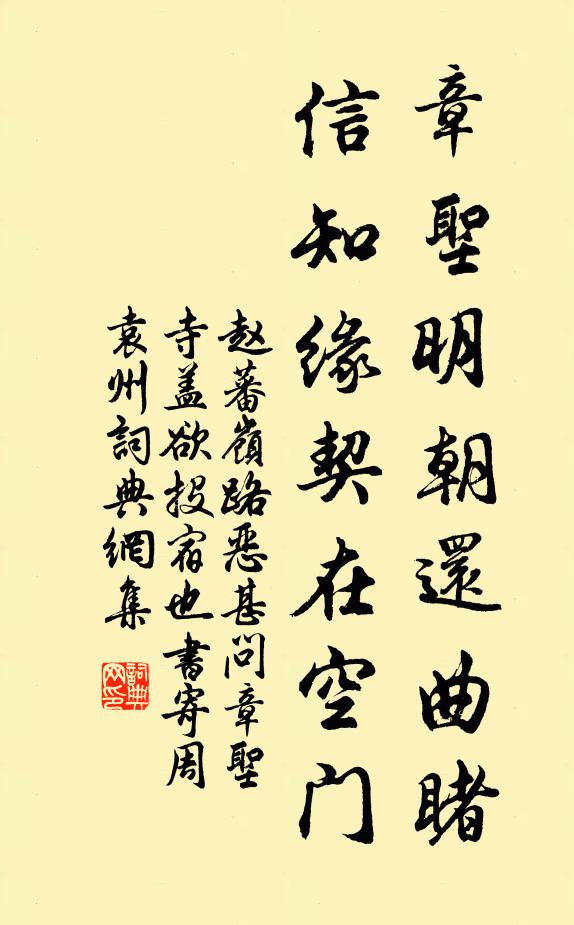 章聖明朝還曲睹
信知緣契在空門
赵蕃嶺路惡甚問章聖
寺盖欲投宿也書寄周
袁州詞典網集
詞典网印